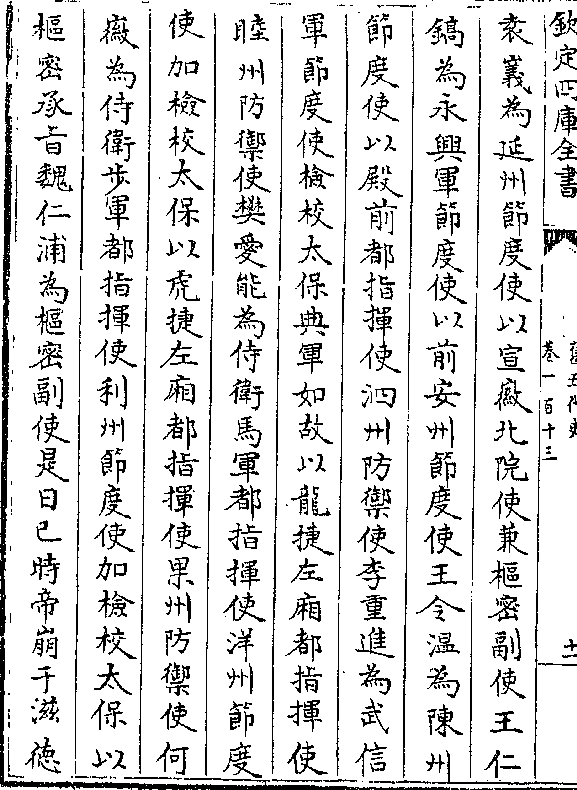 欽定四庫全書
舊五代史
卷一百十三
十一
袁羲為延州節度使以宣徽北院使兼樞密副使王仁
鎬為永興軍節度使以前安州節度使王令溫為陳州
節度使以殿前都指揮使泗州防禦使李重進為武信
軍節度使檢校太保典軍如故以龍捷左廂都指揮使
睦州防禦使樊愛能為侍衛馬軍都指揮使洋州節度
使加檢校太保以虎捷左廂都指揮使果州防禦使何
徽為侍衛步軍都指揮使利州節度使加檢校太保以
樞密承旨魏仁浦為樞密副使是日巳時帝崩于滋德